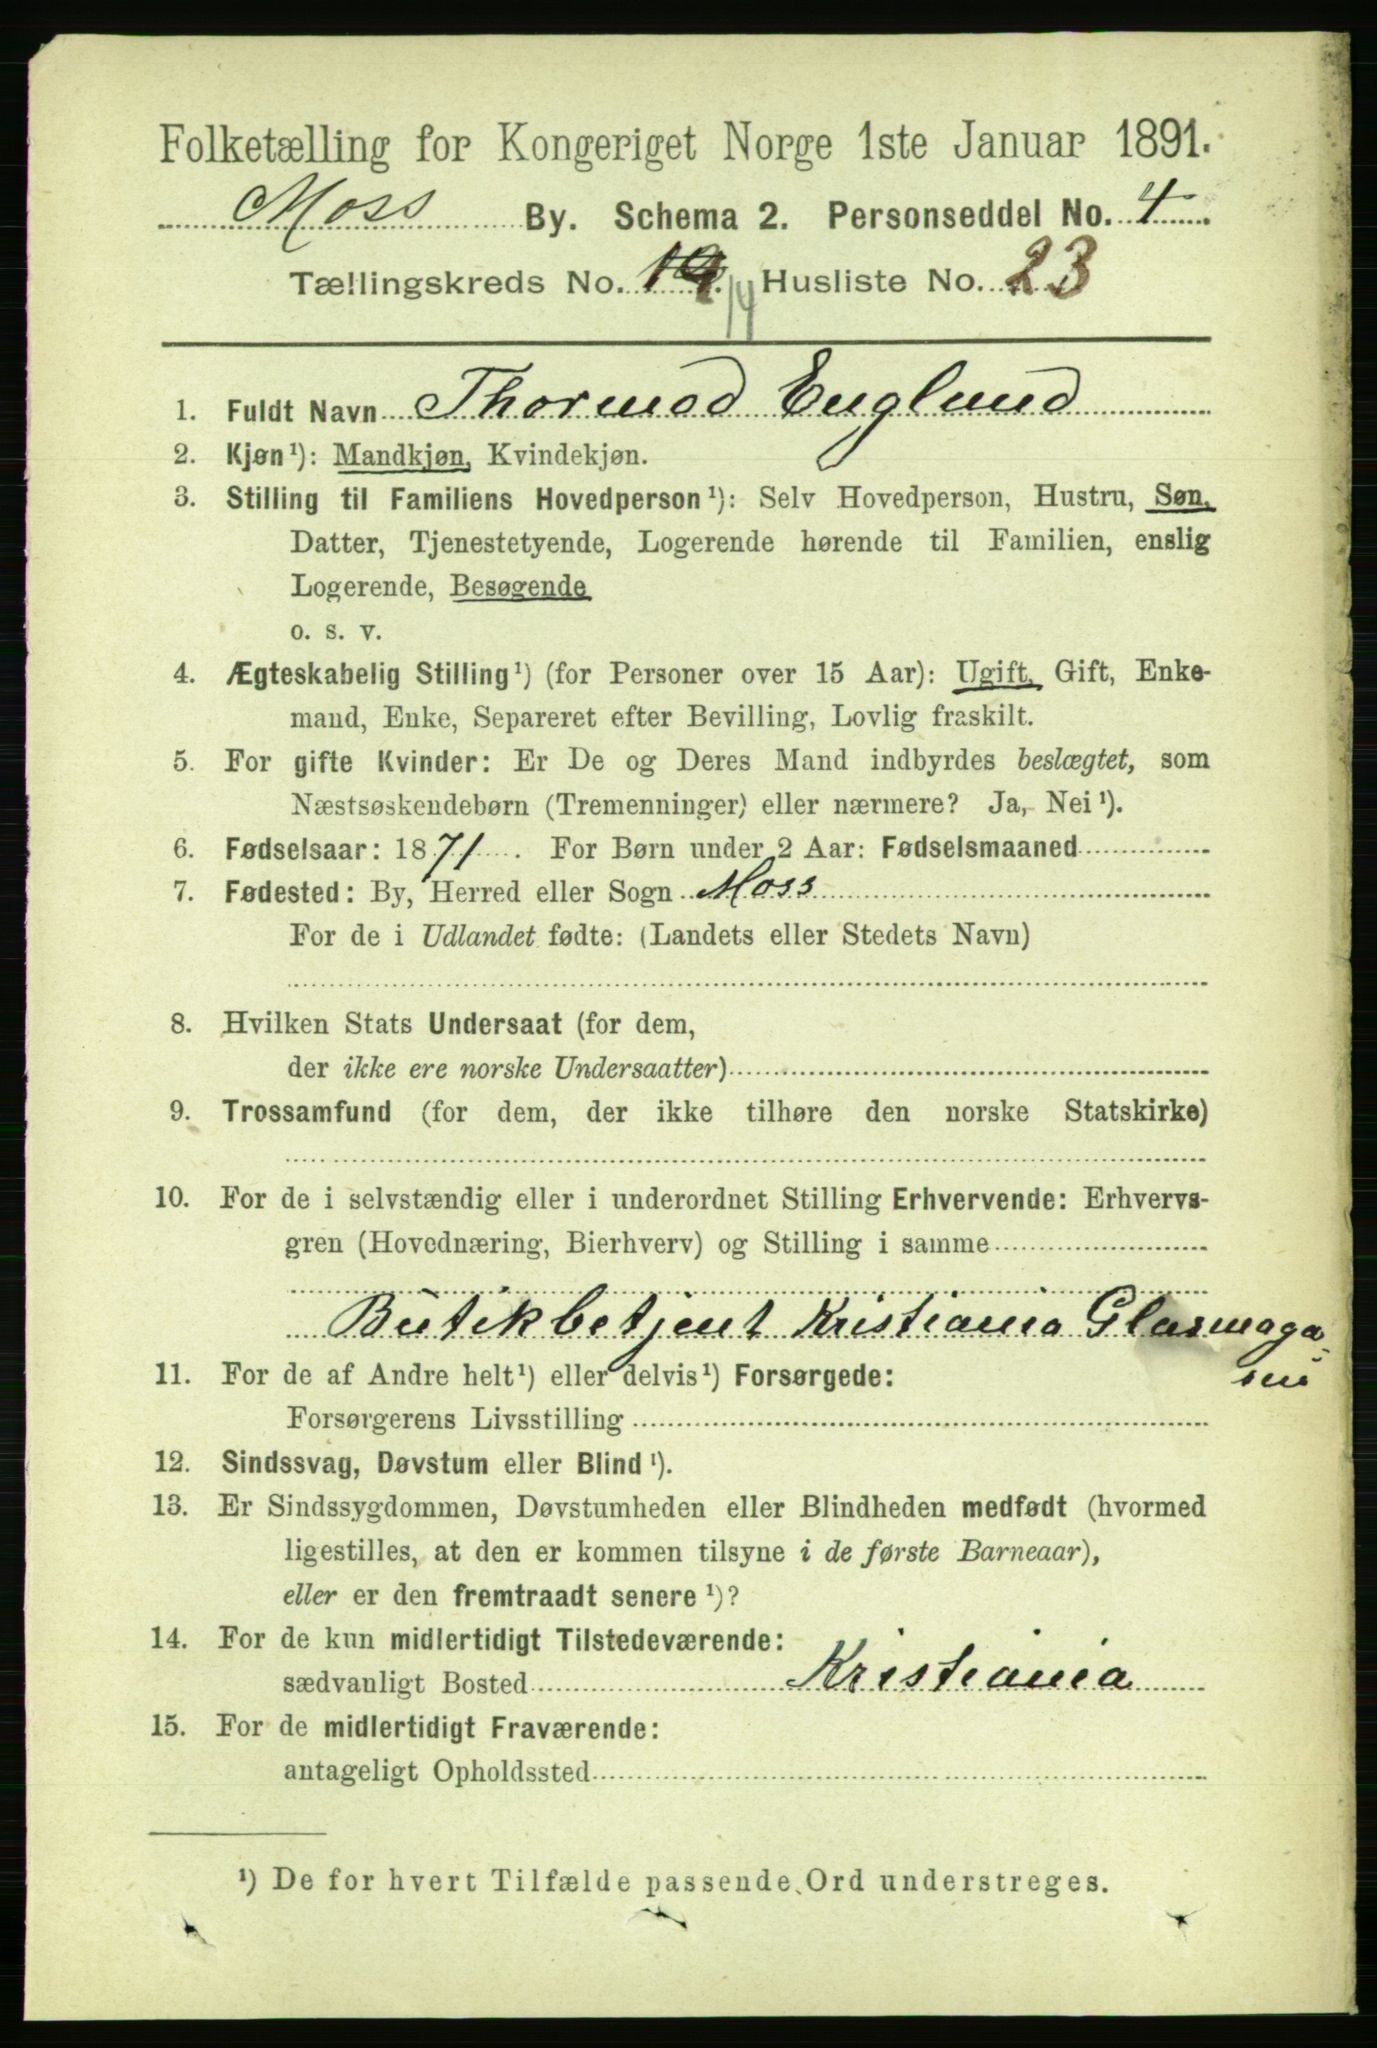 Folketælling for Kongeriget Norge 1ste Januar 1891.
Moss By. Schema 2. Personseddel No. 4
Tællingskreds No. 14 Husliste No. 23
1. Fuldt Navn Thormod Englund
2. Kjøn¹): Mandkjøn, Kvindekjøn.
3. Stilling til Familiens Hovedperson¹): Selv Hovedperson, Hustru, Søn,
Datter, Tjenestetyende, Logerende hørende til Familien, enslig
Logerende, Besøgende
o. s. v.
4. Ægteskabelig Stilling¹) (for Personer over 15 Aar): Ugift, Gift, Enke-
mand, Enke, Separeret efter Bevilling, Lovlig fraskilt.
5. For gifte Kvinder: Er De og Deres Mand indbyrdes beslægtet, som
Næstsøskendebørn (Tremenninger) eller nærmere? Ja, Nei¹).
6. Fødselsaar: 1871. For Børn under 2 Aar: Fødselsmaaned
7. Fødested: By, Herred eller Sogn Moss
For de i Udlandet fødte: (Landets eller Stedets Navn)
8. Hvilken Stats Undersaat (for dem,
der ikke ere norske Undersaatter)
9. Trossamfund (for dem, der ikke tilhøre den norske Statskirke)
10. For de i selvstændig eller i underordnet Stilling Erhvervende: Erhvervs-
gren (Hovednæring, Bierhverv) og Stilling i samme
Butikbetjent Kristiania Glasmaga-
sin
11. For de af Andre helt¹) eller delvis¹) Forsørgede:
Forsørgerens Livsstilling
12. Sindssvag, Døvstum eller Blind¹).
13. Er Sindssygdommen, Døvstumheden eller Blindheden medfødt (hvormed
ligestilles, at den er kommen tilsyne i de første Barneaar),
eller er den fremtraadt senere¹)?
14. For de kun midlertidigt Tilstedeværende:
sædvanligt Bosted Kristiania
15. For de midlertidigt Fraværende:
antageligt Opholdssted
¹) De for hvert Tilfælde passende Ord understreges.